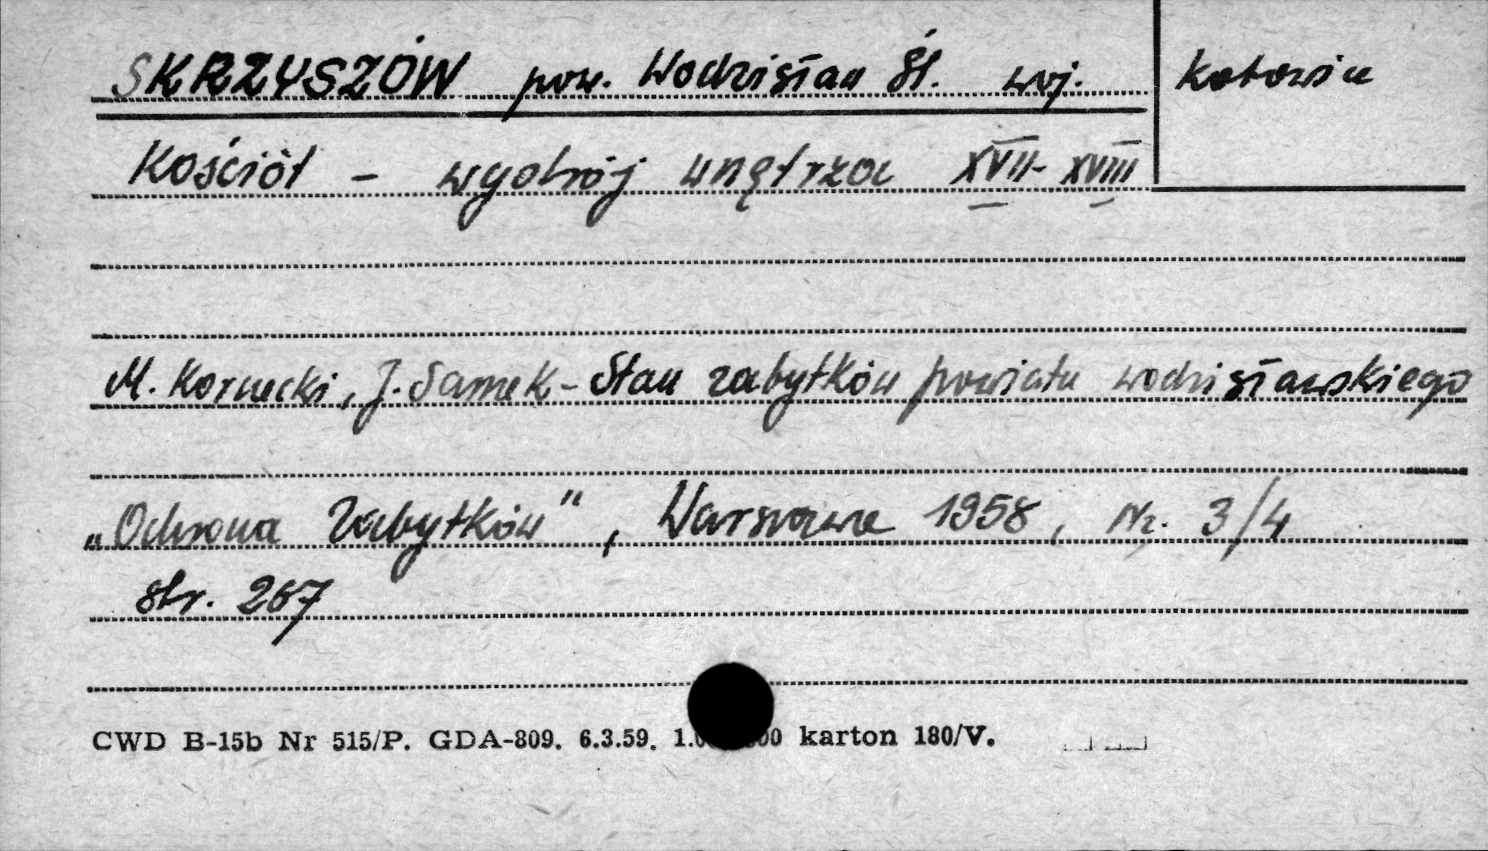 SKRZYSZÓW pow. Wodzisław Śl. woj. Katowice
Kościół - wystrój wnętrza XVII-XVIII
M. Kornecki, J. Samek - Stan zabytków powiatu wodzisławskiego
„Ochrona Zabytków", Warszawa 1958, Nr. 3/4
str. 267
CWD B-15b Nr 515/P. GDA-809. 6.3.59. karton 180/V.